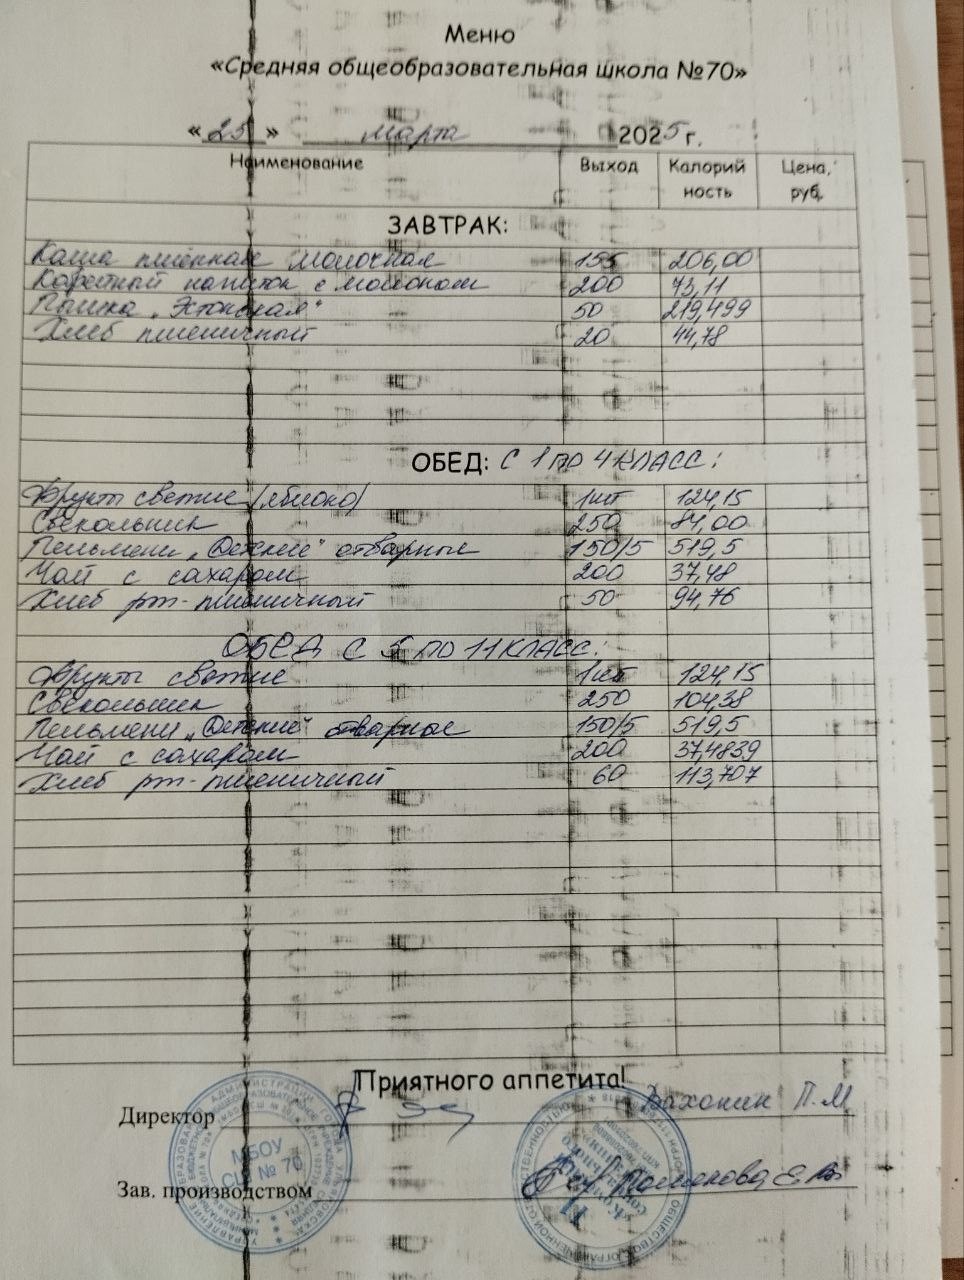 Меню
«Средняя общеобразовательная школа №70»
«25» марта 2025 г.
Наименование Выход Калорий ность Цена, руб.
ЗАВТРАК:
Каша пшённая молочная 155 206,00
Кофейный напиток с молоком 200 73,11
Пышка „Эстонская" 50 219,499
Хлеб пшеничный 20 44,78
ОБЕД: С 1 ПО 4 КЛАСС:
Фрукты свежие (яблоко) 1шт 124,15
Свекольник 250 84,00
Пельмени „Детские" отварные 150/5 519,5
Чай с сахаром 200 37,48
Хлеб рж-пшеничный 50 94,76
ОБЕД С 5 ПО 11 КЛАСС:
Фрукты свежие 1шт 124,15
Свекольник 250 104,38
Пельмени „Детские" отварные 150/5 519,5
Чай с сахаром 200 37,4839
Хлеб рж-пшеничный 60 113,707
Приятного аппетита!
Директор П.М
Зав. производством
МБОУ
СШ № 70